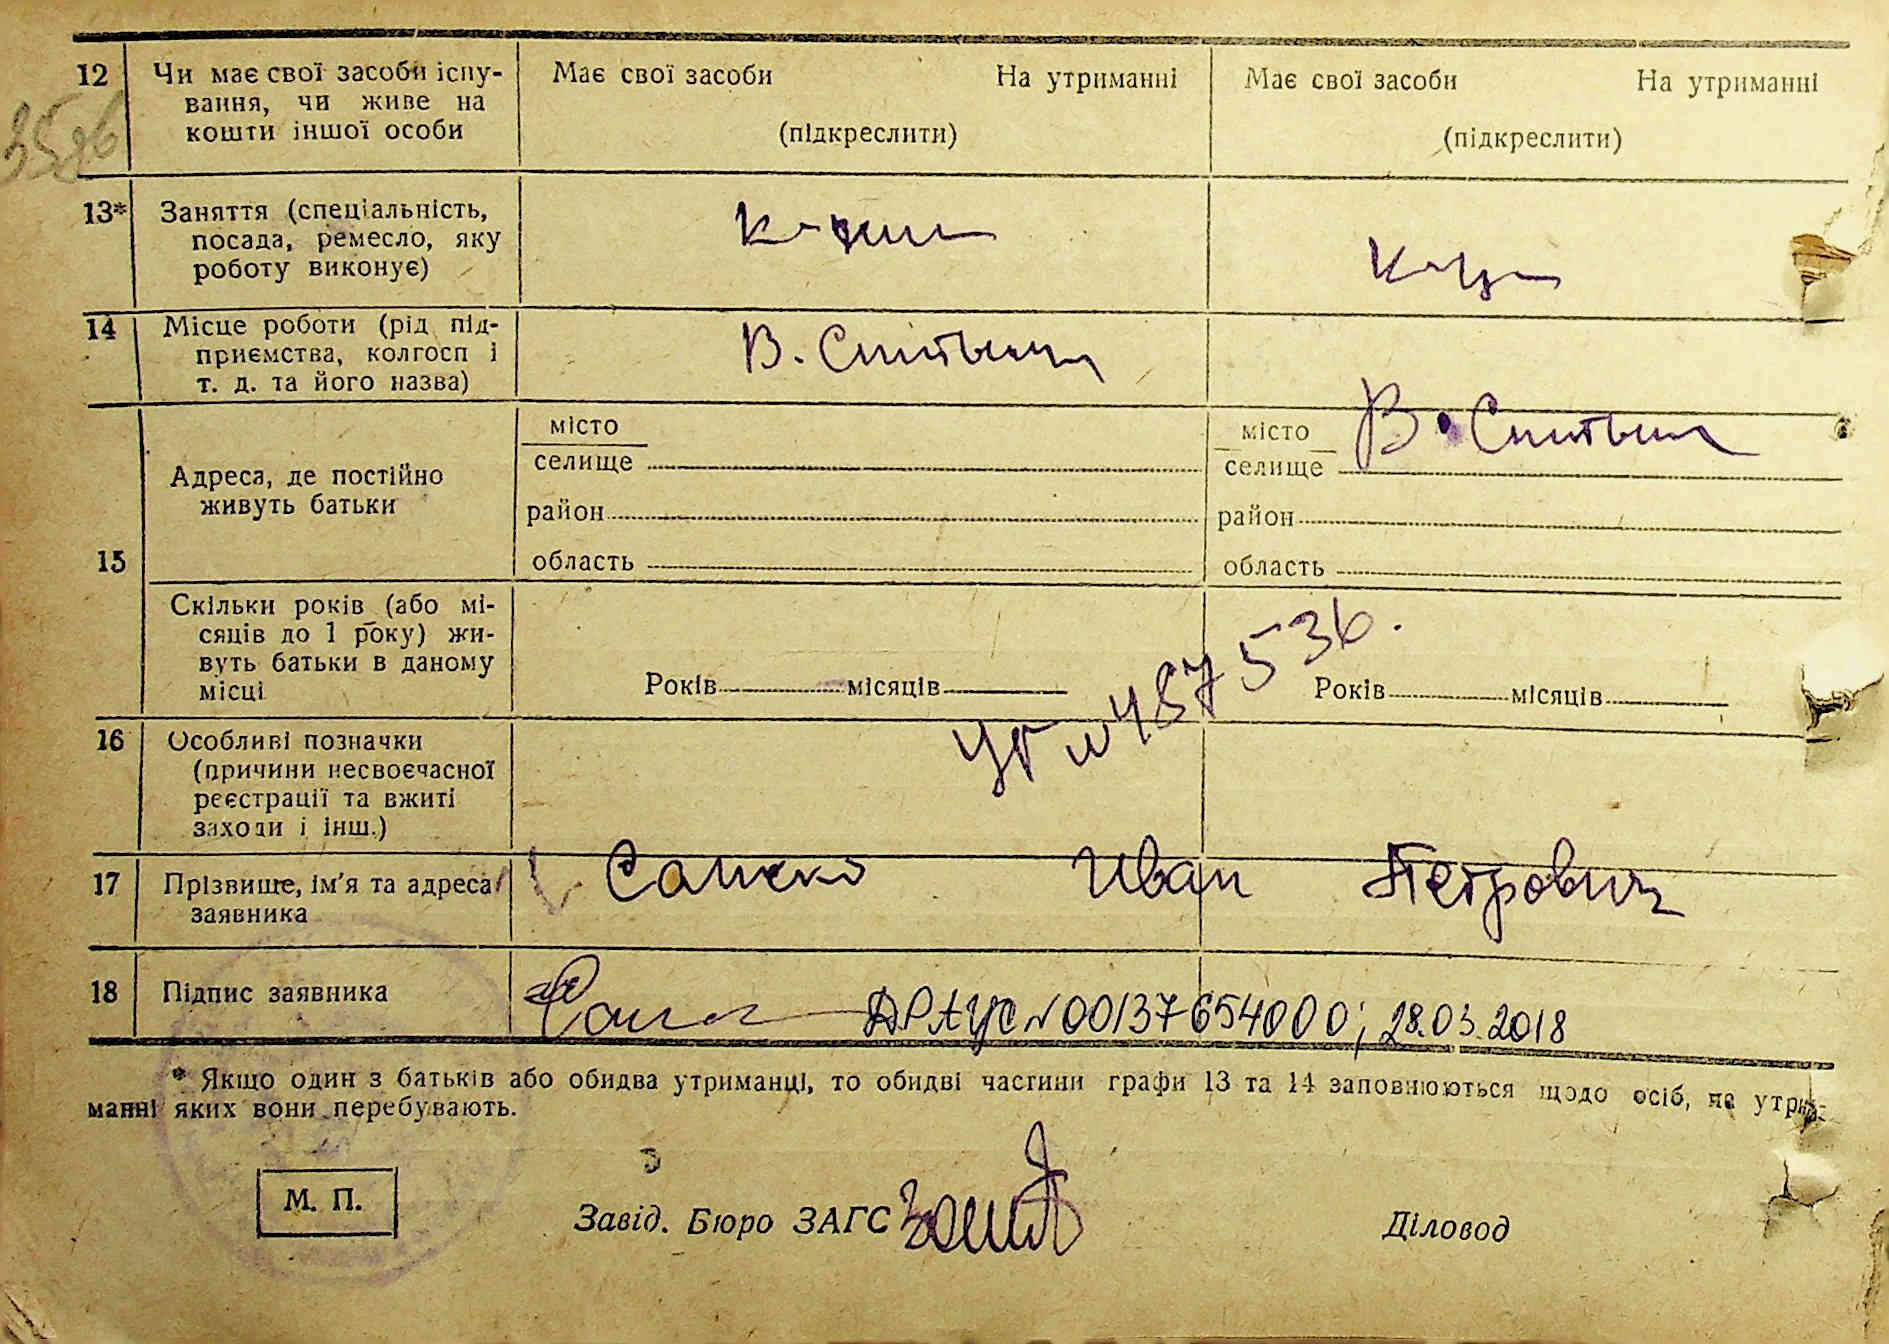 12 Чи має свої засоби існу- Має свої засоби На утриманні Має свої засоби На утриманні
вання, чи живе на
кошти іншої особи (підкреслити) (підкреслити)
13* Заняття (спеціальність,
посада, ремесло, яку
роботу виконує)
14 Місце роботи (рід під-
приємства, колгосп і
т. д. та його назва)
місто місто
Адреса, де постійно селище селище
живуть батьки район район
15 область область
Скільки років (або мі-
сяців до 1 року) жи-
вуть батьки в даному Років місяців Років місяців
місці
487536.
16 Особливі позначки
(причини несвоєчасної
реєстрації та вжиті
заходи і інш.)
17 Прізвище, ім'я та адреса Иван Петрович
заявника
18 Підпис заявника ДРАЦС N 00137654000; 28.03.2018
* Якщо один з батьків або обидва утриманці, то обидві частини графи 13 та 14 заповнюються щодо осіб, на утри-
манні яких вони перебувають.
М. П. Завід. Бюро ЗАГС Діловод